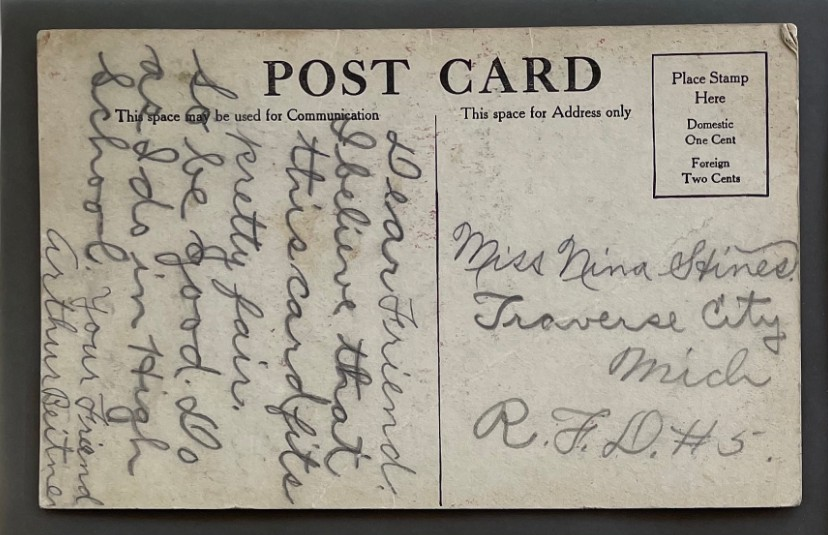 POST CARD
This space may be used for Communication
This space for Address only
Place Stamp
Here
Domestic
One Cent
Foreign
Two Cents
Dear Friend.
I believe that
this card fits
pretty fair.
So be good. Do
as I do in High
School. Your Friend
Arthur Beitner
Miss Nina Hines.
Traverse City
Mich
R.F.D.#5.